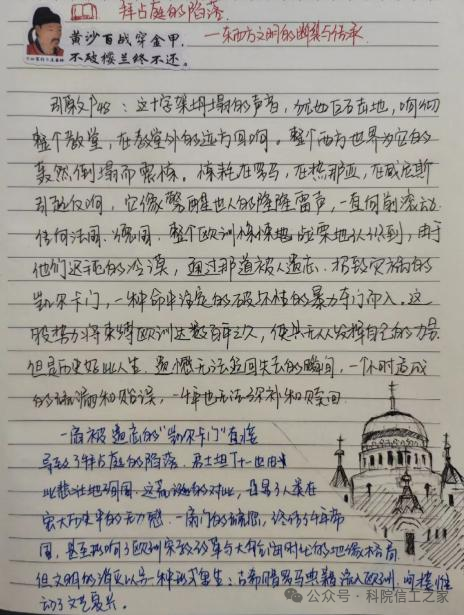 拜占庭的陷落
—东西方文明的断裂与传承
黄沙百战穿金甲，
不破楼兰终不还。
这十字架坍塌的声音，
整个教堂，在教堂外的远方回响。整个西方世界为它的
轰然倒塌而震悚。惊耗在罗马，在热那亚，在威尼斯
引起反响，它像警醒世人的隆隆雷声，一直向前滚动
传向法国、德国，整个欧洲惊悚地战栗地认识到，由于
他们迟钝的冷漠，通过那道被人遗忘、招致灾祸的
凯尔卡门，一种命中注定的破坏性的暴力夺门而入。这
股势力将束缚欧洲达数百年之久，使其无从发挥自己的力量
但是历史好比人生，遗憾无法追回失去的瞬间，一个小时造成
的疏漏和贻误，一千年也无法弥补和赎回
一扇被遗忘的“凯尔卡门”直接
导致了拜占庭的陷落，君士坦丁十一也由
此悲壮地殉国，这荒诞的对比，
宏大历史中的无力感，一扇门的疏忽，终结了千年帝
国，甚至影响了欧洲宗教改革与大航海时代的地缘格局
但文明的消灭以另一种形式重生：古希腊罗马典籍流入欧洲，间接推
动了文艺复兴。
公众号·科院信工之家